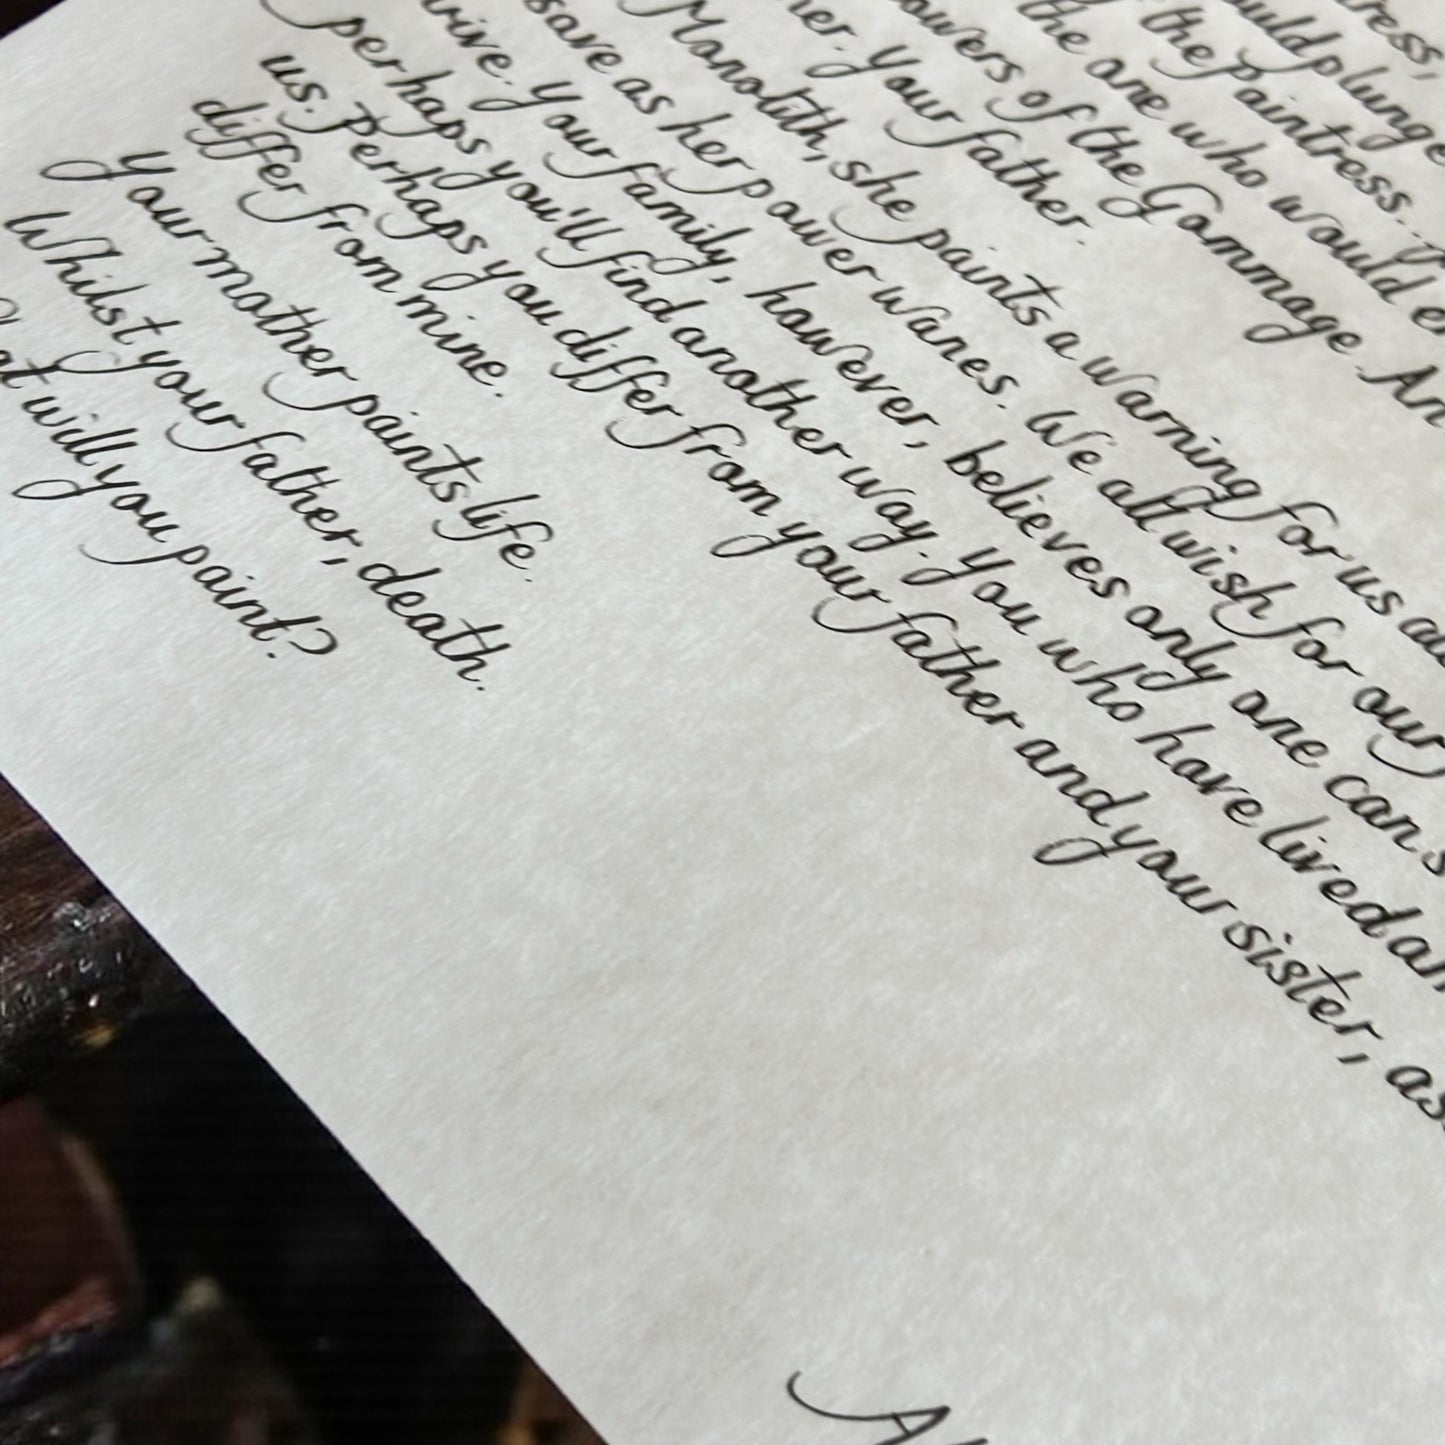 ress,
ould plunge
the Paintress.
the one who would
owers of the Gommage. An
her. Your father.
Monolith, she paints a warning for us
save as her power wanes. We all wish for our
vive. Your family, however, believes only one can s
perhaps you'll find another way. You who have lived
us. Perhaps you differ from your father and your sister, as
differ from mine.
Your mother paints life.
Whilst your father, death.
at will you paint?